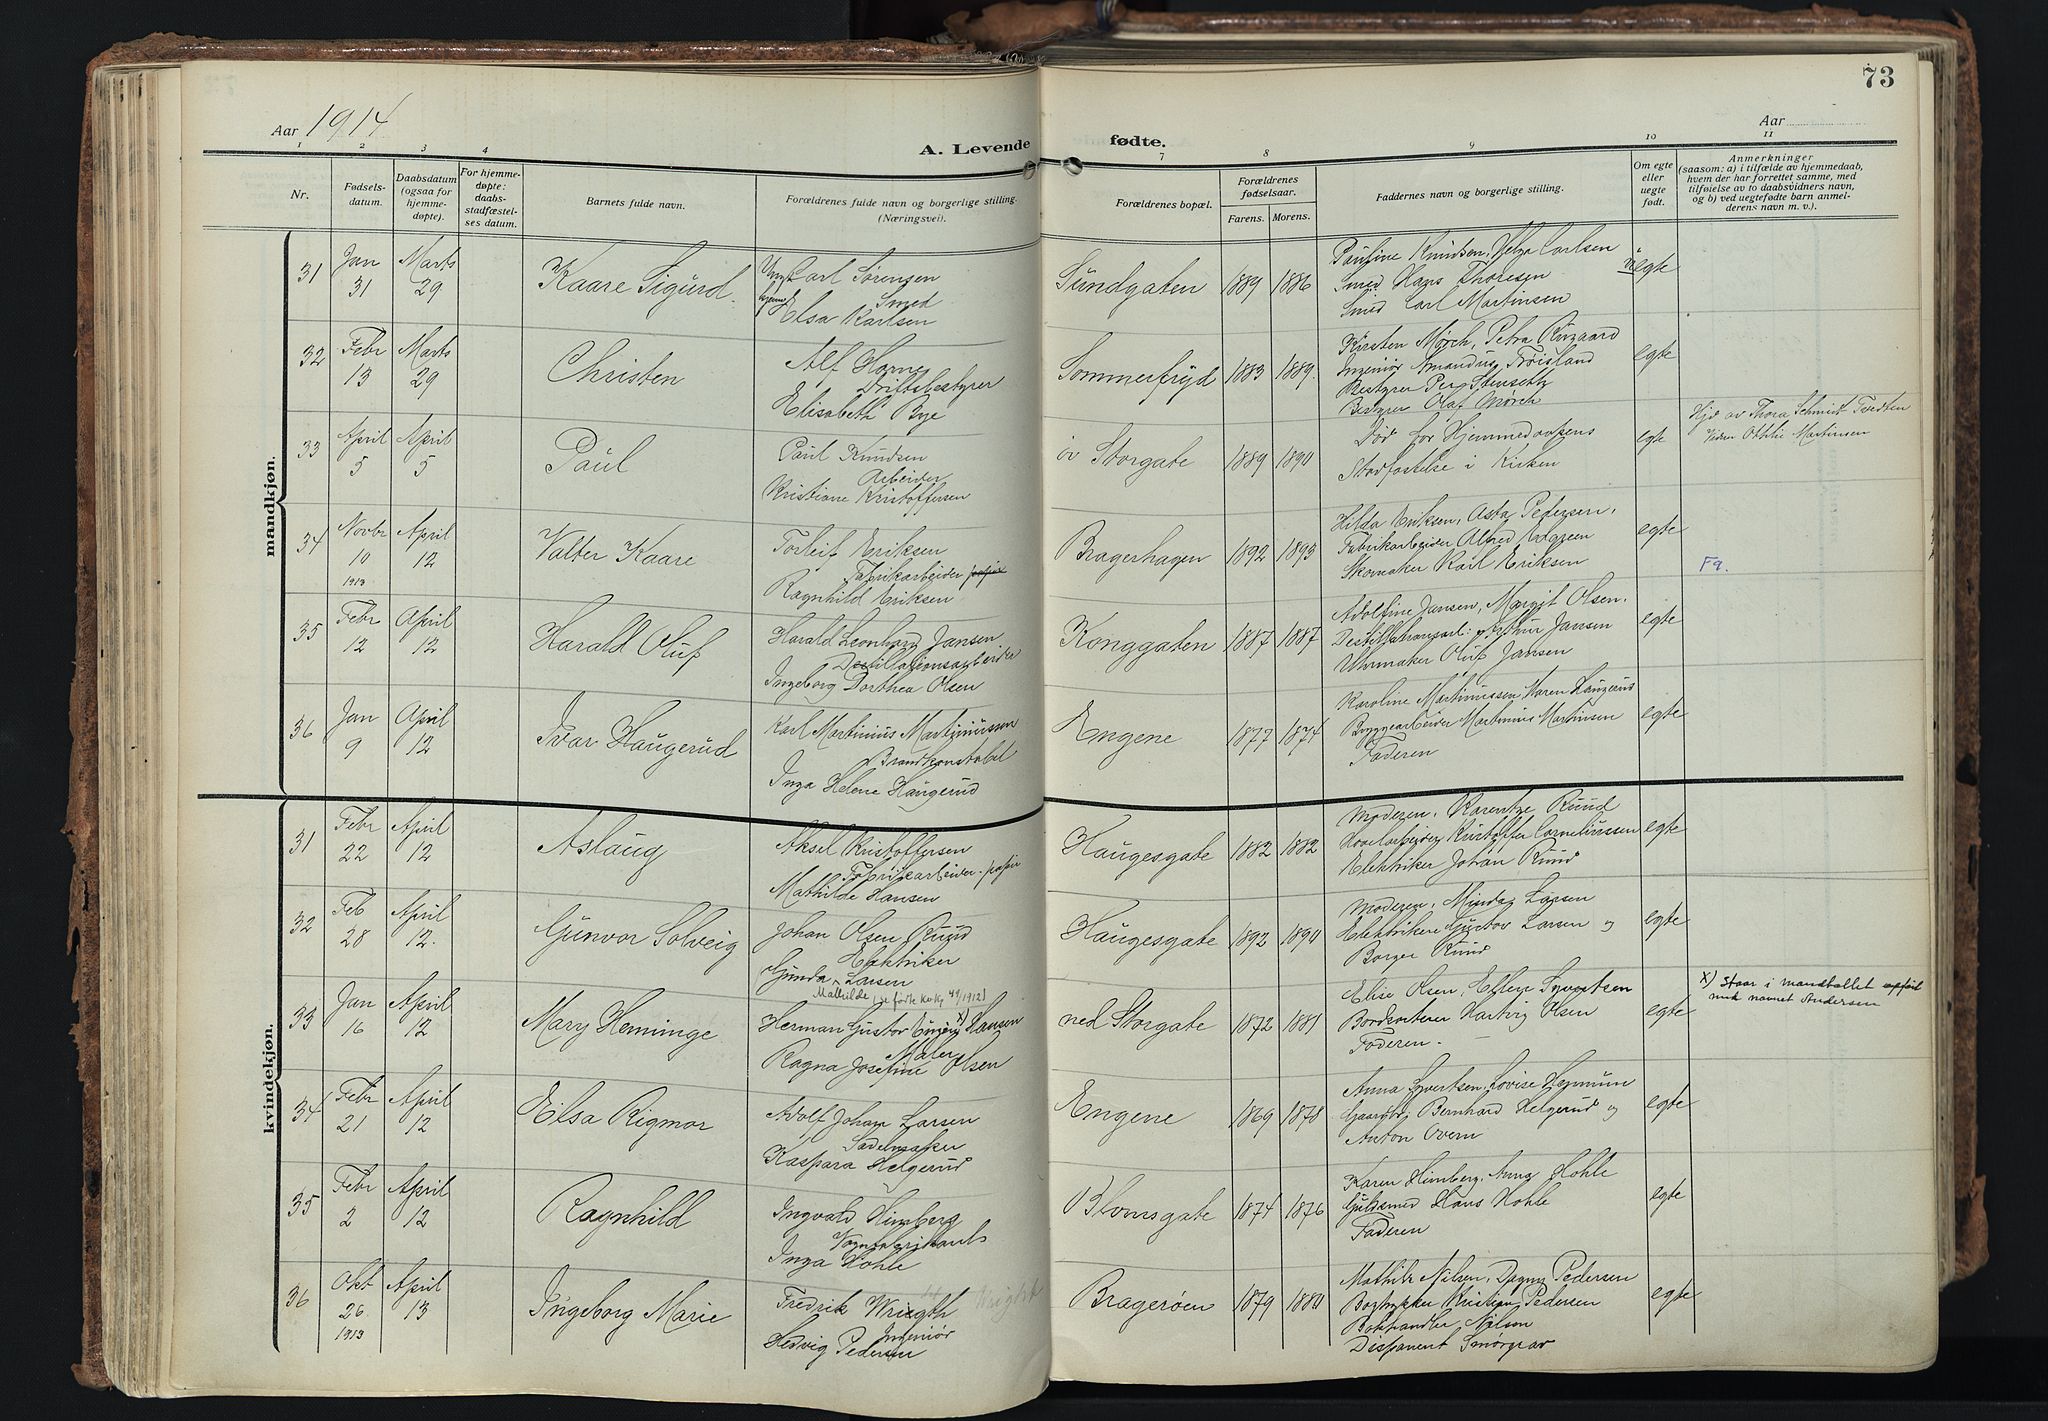 73
Aar 1914
Aar
1 2 3 4
A. Levende fødte.
7 8 9 10 11
Nr.
Fødsels-
datum.
Daabsdatum
(ogsaa for
hjemme-
døpte).
For hjemme-
døpte:
daabs-
stadfæstel-
ses datum.
Barnets fulde navn.
Forældrenes fulde navn og borgerlige stilling.
(Næringsvei).
Forældrenes bopæl.
Forældrenes
fødselsaar.
Farens. Morens.
Faddernes navn og borgerlige stilling.
Om egte
eller
uegte
født.
Anmerkninger
(saasom: a) i tilfælde av hjemmedaab,
hvem der har forrettet samme, med
tilføielse av to daabsvidners navn,
og b) ved uegtefødte barn anmel-
derens navn m. v.).
mandkjøn.
31 Jan 31 Marts 29 Kaare Sigurd
Carl Sørensen
Smed
Elsa Karlsen
Sundgaten 1889 1886
Pauline Knudsen, Helga Carlsen
Smed Hans Thoresen
Smed Carl Martinsen
uegte
32 Febr 13 Marts 29 Christen
Alf Horne
Driftsbestyrer
Elisabeth Bye
Sommerfryd 1883 1889.
Kirsten Mørch, Petra
Ingeniør Amandus Frøisland
Bestyrer Per Stenseth
Bestyrer Olaf Mørch
egte
33 April 5 April 5 Paul
Paul Knudsen
Arbeider
Kristiane Kristoffersen
øv Storgate 1889 1890
Død før Hjemmedaabens
Stadfæstelse i Kirken
egte
Hjd av Thora Schmidt Tvedten
Vidner Othilie Martinsen
34 Novbr 10 1913 April 12 Valter Kaare
Torleif Eriksen
Fabrikarbeider papir
Ragnhild Eriksen
Bragerhagen 1892 1893
Hilda Eriksen, Asta Pedersen,
Fabrikarbeider Alfred
Skomaker Karl Eriksen
egte
F9.
35 Febr 12 April 12 Harald Oluf
Harald Leonhard Jansen
Destillationsarbeider
Ingeborg Dorthea Olsen
Konggaten 1887 1887
Adolfine Jansen, Margit Olsen.
Destillationsarb: Arthur Jansen
Uhrmaker Oluf Jansen
egte
36 Jan 9 April 12 Ivar Haugerud
Karl Martinius Martiniussen
Brandkonstabel
Inga Helene Haugerud
Engene 1877 1874
Karoline Martinussen, Karen
Byggearbeider Martinius Martinsen
Faderen
egte
kvindekjøn.
31 Febr 22 April 12 Aslaug
Aksel Kristoffersen
Fabrikarbeider papir
Mathilde Hansen
Haugesgate 1882 1882
Moderen, Karentze Ruud
Høvelarbeider Kristoffer Corneliussen
Elektriker Johan Ruud
egte
32 Feb 28 April 12. Gunvor Solveig
Johan Olsen Ruud
Elektriker
Gunda Larsen
Mathilde (se fødte 49/1912)
Haugesgate 1892 1890
Moderen, Minda Larsen
Elektrikere Gustav Larsen og
Borger Ruud
egte
33 Jan 16 April 12 Mary Hemminge
Herman Gustav X) Hansen
Maler
Ragna Josefine Olsen
ned Storgate 1872 1881
Elise Olsen, Ellen Syvertsen
Bordsorterer Hartvig Olsen
Faderen.
egte
X) Staar i mandtallet opført
med navnet Andersen
34 Febr 21 April 12 Elsa Rigmor
Adolf Johan Larsen
Sadelmaker
Kaspara Helgerud
Engene 1869 1878
Anna Syvertsen, Lovise
Gaardbr Bernhard Helgerud og
Anton Overn
egte
35 Febr 2 April 12 Ragnhild
Ingvald Himberg
Vognfabrikant
Inga Hohle
Blomsgate 1874 1876
Karen Himberg, Anna Hohle
Guldsmed Hans Hohle
Faderen
egte
36 Okt 26 1913 April 13 Ingeborg Marie
Fredrik Wriegth Wright
Ingeniør
Hedvig Pedersen
Bragerøen 1879 1880
Mathilde Nilsen, Dagny Pedersen
Bogtrykker Kristian Pedersen
Bokhandler Nilsen
Disponent Smørgrav
egte